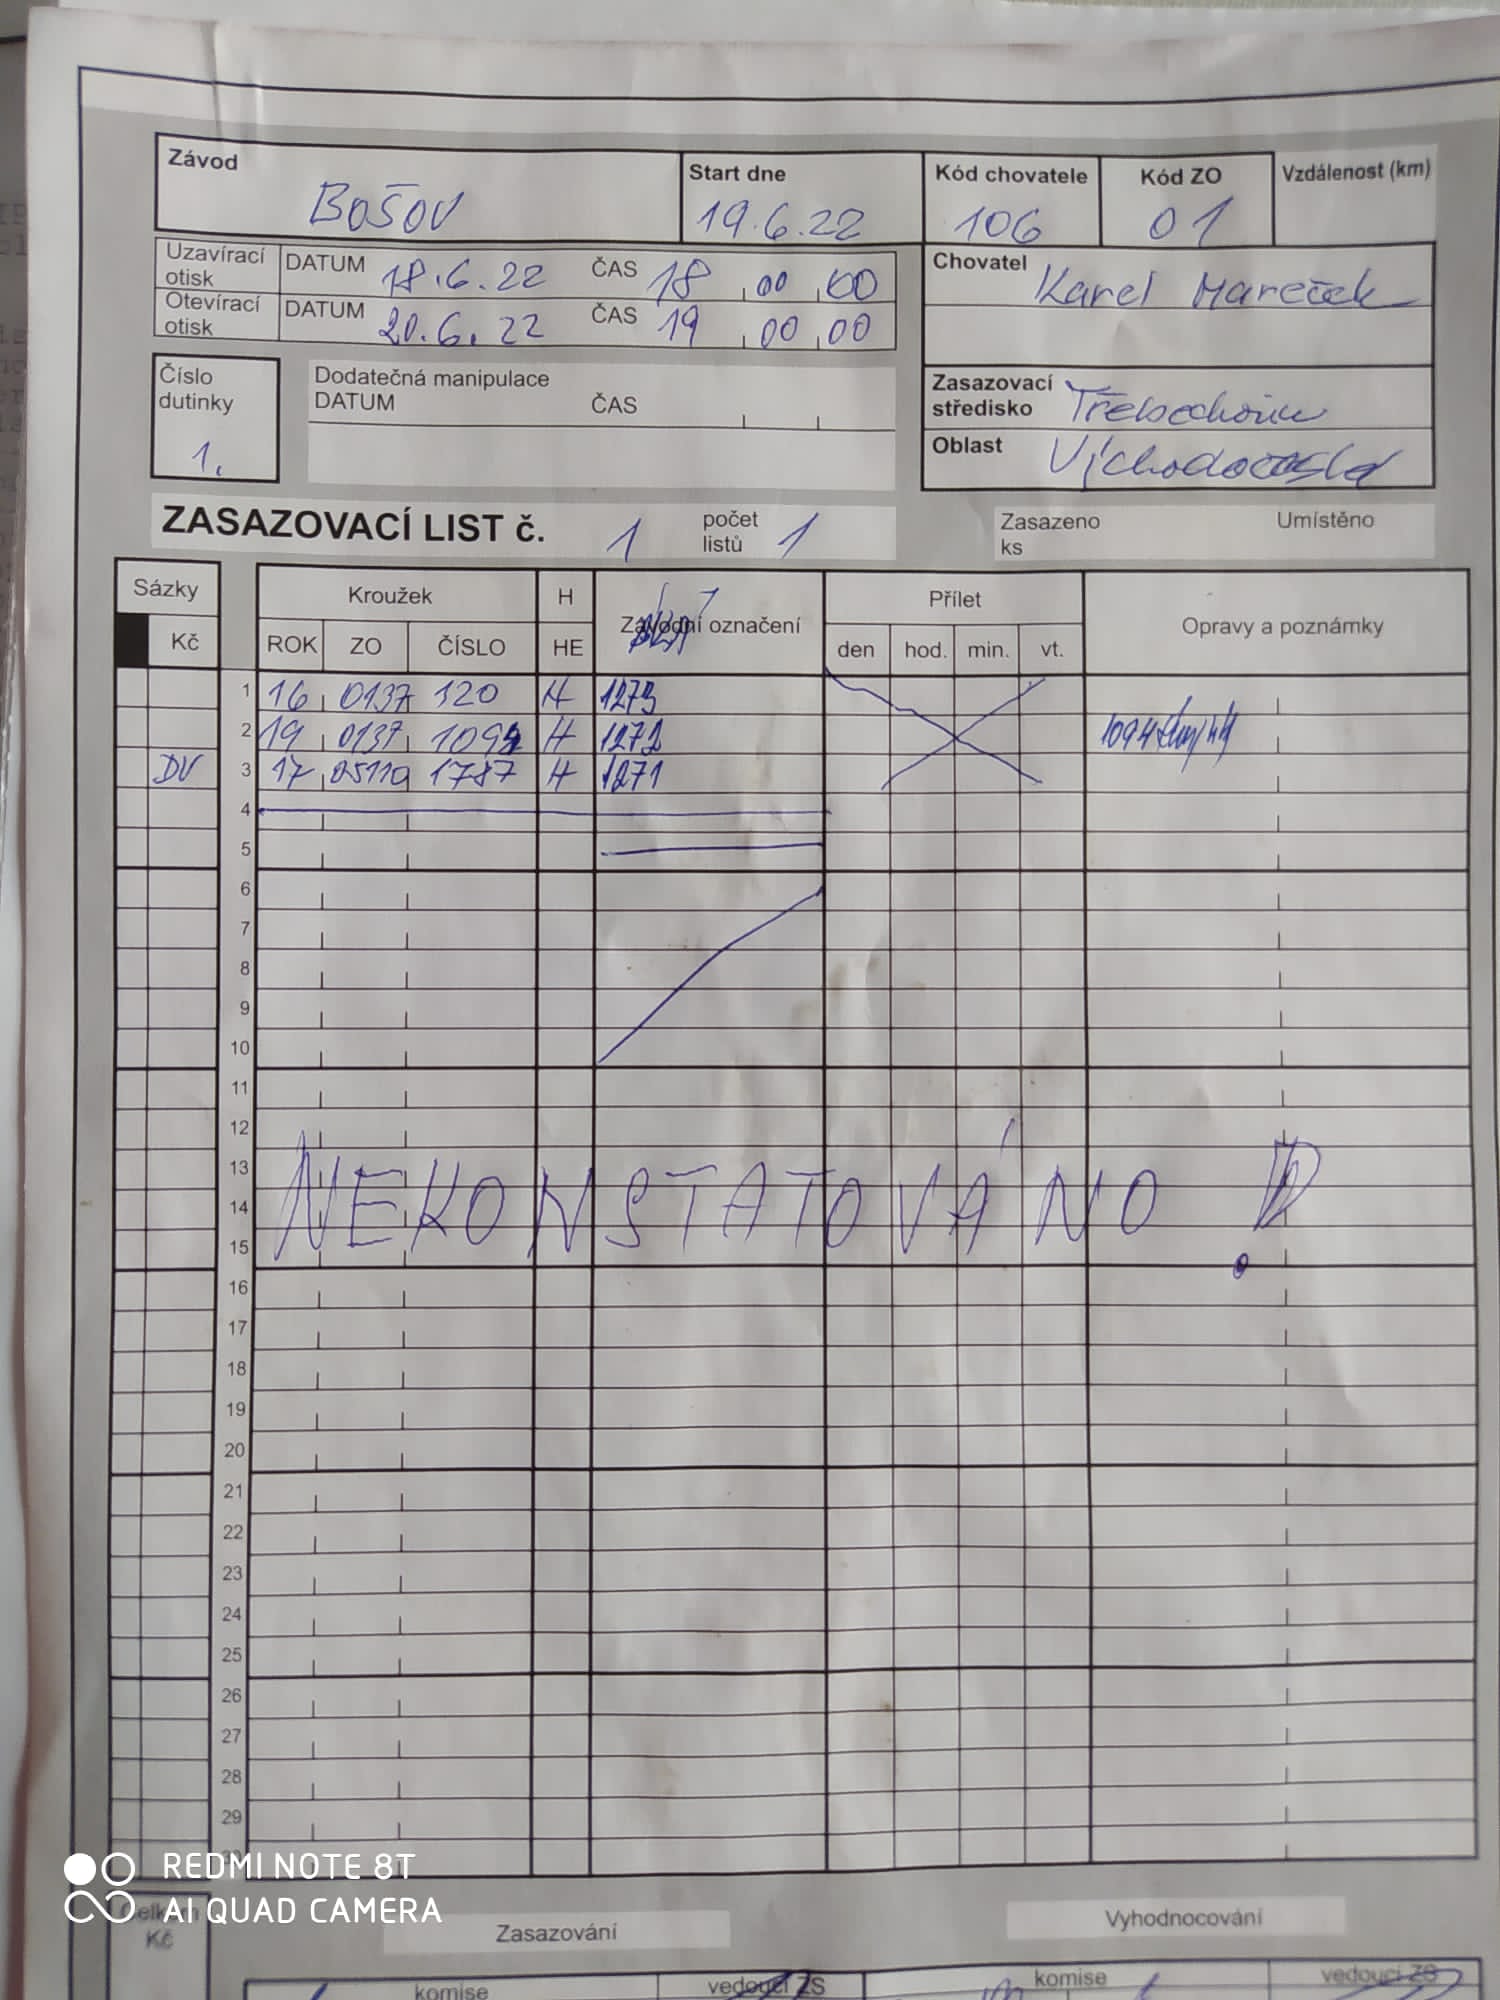 Závod Start dne Kód chovatele Kód ZO Vzdálenost (km)
Bošov 19.6.22 106 01
Uzavírací otisk DATUM 18.6.22 ČAS 18 00 00
Otevírací otisk DATUM 20.6.22 ČAS 19 00 00
Chovatel Karel Mareček
Číslo dutinky 1.
Dodatečná manipulace
DATUM ČAS
Zasazovací středisko
Oblast
ZASAZOVACÍ LIST č. 1 počet listů 1 Zasazeno ks Umístěno
Sázky Kroužek H Závodní označení Přílet Opravy a poznámky
Kč ROK ZO ČÍSLO HE den hod. min. vt.
1 16 0137 320 H 1273
2 19 0137 1094 H 1272 1094
DV 3 17 05110 1787 H 1271
4
5
6
7
8
9
10
11
12
13
14
15
NEKONSTATOVÁNO
16
17
18
19
20
21
22
23
24
25
26
27
28
29
REDMI NOTE 8T
AI QUAD CAMERA
Celkem Kč
Zasazování Vyhodnocování
komise vedoucí ZS komise vedoucí ZS